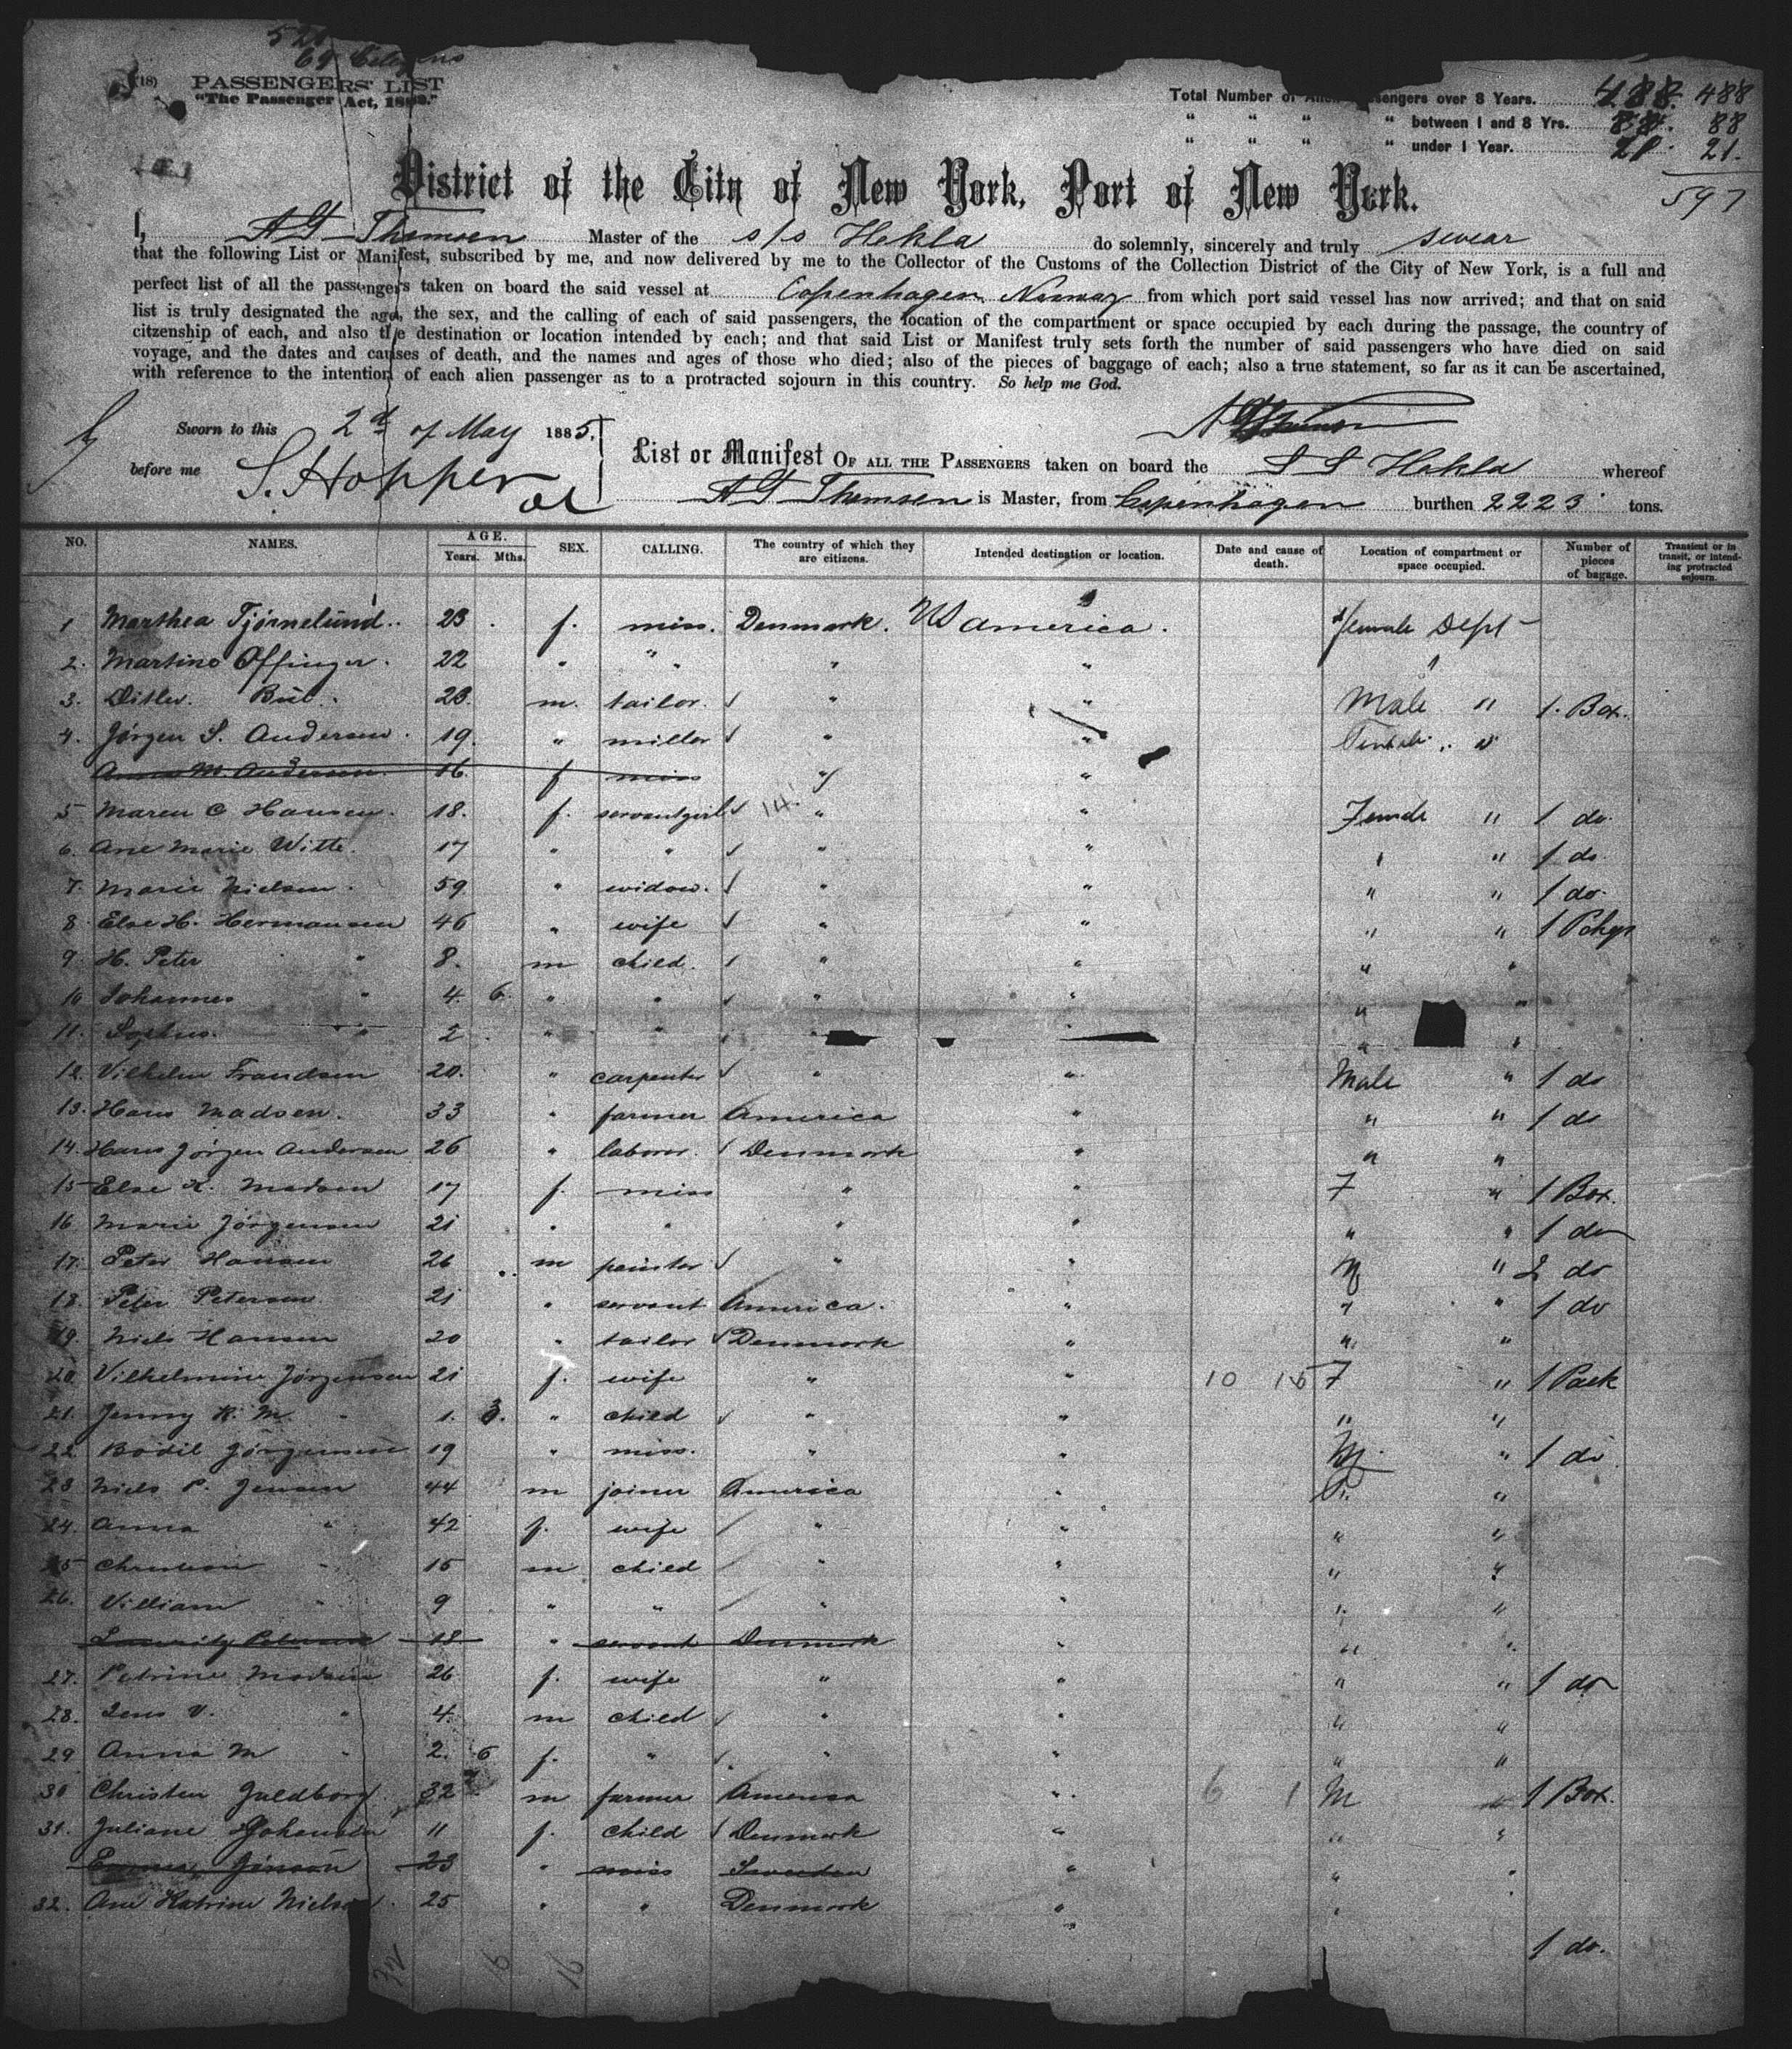 52
69 Citizens
(18) PASSENGERS' LIST
"The Passenger Act, 1882."
Total Number of Alien Passengers over 8 Years. 488. 488
" " " " between 1 and 8 Yrs. 88. 88
" " " " under 1 Year. 21. 21.
597
District of the City of New York, Port of New York.
I, A G Thomsen Master of the s/s Hekla do solemnly, sincerely and truly swear
that the following List or Manifest, subscribed by me, and now delivered by me to the Collector of the Customs of the Collection District of the City of New York, is a full and
perfect list of all the passengers taken on board the said vessel at Copenhagen Norway from which port said vessel has now arrived; and that on said
list is truly designated the age, the sex, and the calling of each of said passengers, the location of the compartment or space occupied by each during the passage, the country of
citzenship of each, and also the destination or location intended by each; and that said List or Manifest truly sets forth the number of said passengers who have died on said
voyage, and the dates and causes of death, and the names and ages of those who died; also of the pieces of baggage of each; also a true statement, so far as it can be ascertained,
with reference to the intention of each alien passenger as to a protracted sojourn in this country. So help me God.
Sworn to this 2d of May 1885,
before me S. Hopper
List or Manifest OF ALL THE PASSENGERS taken on board the S S Hekla whereof
A G Thomsen is Master, from Copenhagen burthen 2223 tons.
NO. NAMES. AGE. Years. Mths. SEX. CALLING. The country of which they are citizens. Intended destination or location. Date and cause of death. Location of compartment or space occupied. Number of pieces of bagage. Transient or in transit, or intending protracted sojourn.
1 Marthea Tjørnelund 23 f. miss. Denmark. US america. female Dept
2. Martine Offinger. 22 " " " " " "
3. Ditlev 23. m. tailor. " " Male " 1. Box.
4. Jørgen S. Andersen. 19. " miller " " "
Anna M. Andersen 16 f miss " "
5 Maren C Hansen. 18. f. servantgirl 14 " " Female " 1 do.
6. Ane Marie Witte. 17 " " " " " " 1 do.
7. Marie Nielsen. 59 " widow. " " " " 1 do.
8. Else H. Hermansen 46 " wife " " " " 1 Pckgs
9 H. Peter " 8. m child. " " " "
10 Johannes " 4. 6. " " " " " "
11. Sophus. " 2 " " " " " "
12. Vilhelm Frandsen 20. " carpenter " " Male " 1 do
13. Hans Madsen. 33 " farmer America " " " 1 do
14. Hans Jörgen Andersen 26 " laborer. Denmark " " "
15 Else K. Madsen 17 f. miss " " F " 1 Box.
16 Marie Jörgensen 21 " " " " " " 1 do
17. Peter Hansen 26 m painter " " M " 2 do
18. Peter Petersen 21 " servant America. " " " 1 do
19. Niels Hansen 20 " tailor Denmark " " "
20. Vilhelmine Jørgensen 21 f. wife " " 10 15 F " 1 Pack
21. Jenny K. M. " 1. 3. " child " " " "
22 Bodil Jørgensen 19 " miss. " " " 1 do
23 Niels P. Jensen 44 m joiner America " "
24. Anna " 42 f. wife " " " "
25 Christian " 15 m child " " " "
26. William " 9 " " " " " "
Lauritz Petersen 18 " servant Denmark " " "
27. Petrine Madsen 26 f. wife " " " " 1 do
28. Jens V. " 4. m child " " " "
29 Anna M " 2. 6 f. " " " " "
30 Christen Guldborg 32 m farmer America " 6 1 M " 1 Box.
31. Juliane Johansen 11 f. child Denmark " " "
Emma Jönson 23 " miss Sweden " " "
32. Ane Katrine Nielsen 25 " " Denmark " "
1 do.
32 16 16